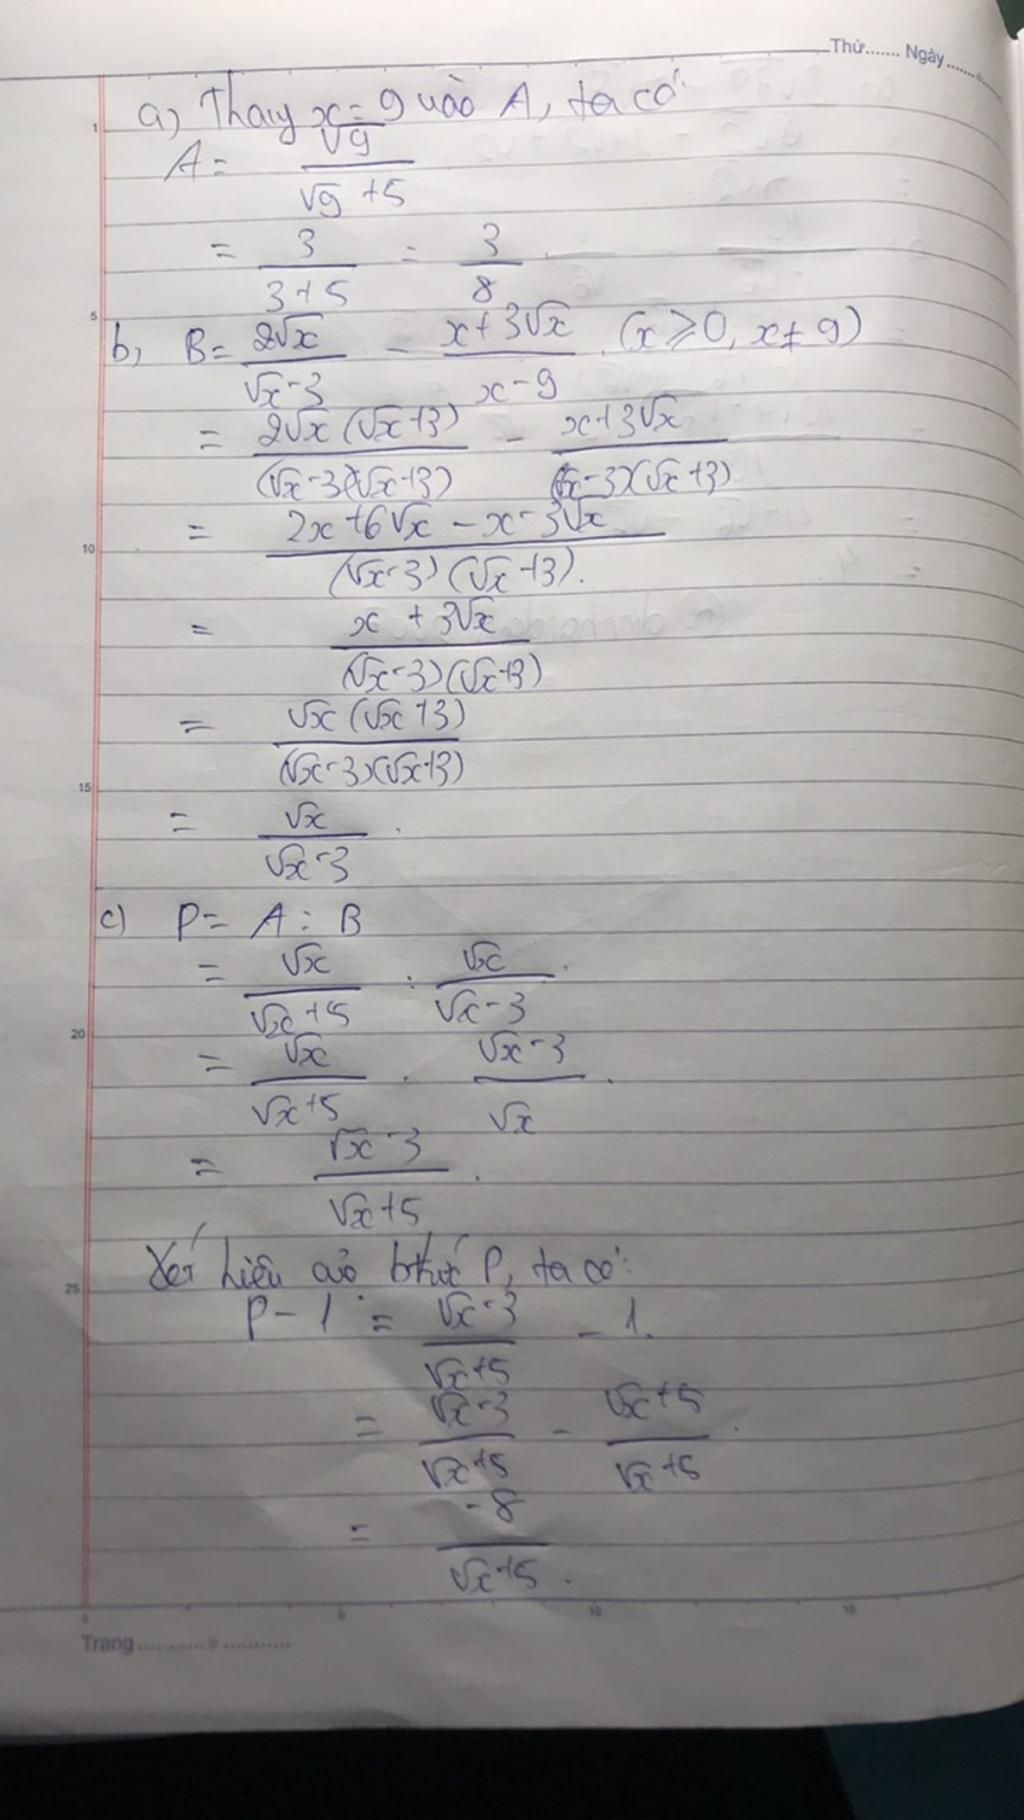 Thứ....... Ngày.......
a) Thay x = 9 vào A, ta có:
A = √9 / (√9 + 5)
= 3 / (3 + 5) = 3 / 8
b, B = 2√x / (√x - 3) - (x + 3√x) / (x - 9) (x ⩾ 0, x ≠ 9)
= 2√x (√x + 3) / (√x - 3)(√x + 3) - (x + 3√x) / (√x - 3)(√x + 3)
= (2x + 6√x - x - 3√x) / (√x - 3)(√x + 3).
= (x + 3√x) / (√x - 3)(√x + 3)
= √x (√x + 3) / (√x - 3)(√x + 3)
= √x / (√x - 3).
c) P = A : B
= √x / (√x + 5) : √x / (√x - 3).
= √x / (√x + 5) . (√x - 3) / √x.
= (√x - 3) / (√x + 5).
Xét hiệu của bthức P, ta có:
P - 1 = (√x - 3) / (√x + 5) - 1.
= (√x - 3) / (√x + 5) - (√x + 5) / (√x + 5).
= -8 / (√x + 5).
1
5
10
15
20
25
0 5 10 15
Trang....................